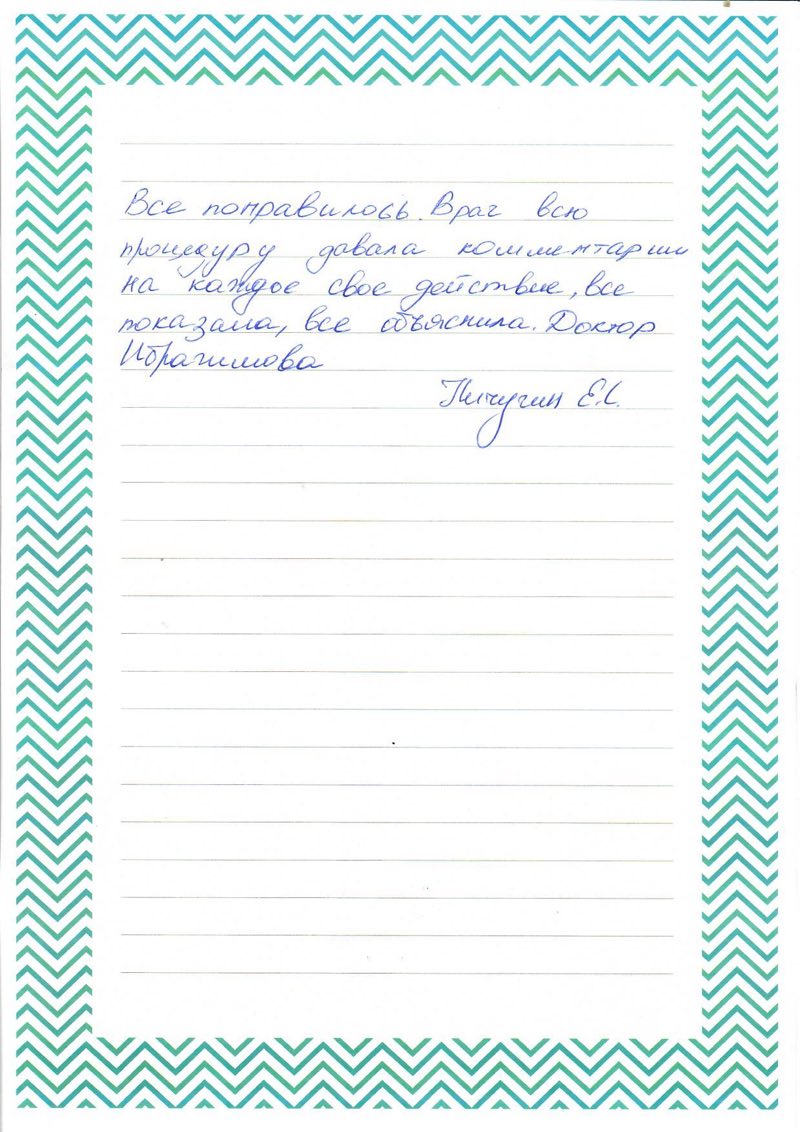 Все понравилось. Врач всю
процедуру давала комментарии
на каждое свое действие, все
показала, все объяснила. Доктор
Ибрагимова
Пичугин Е.С.